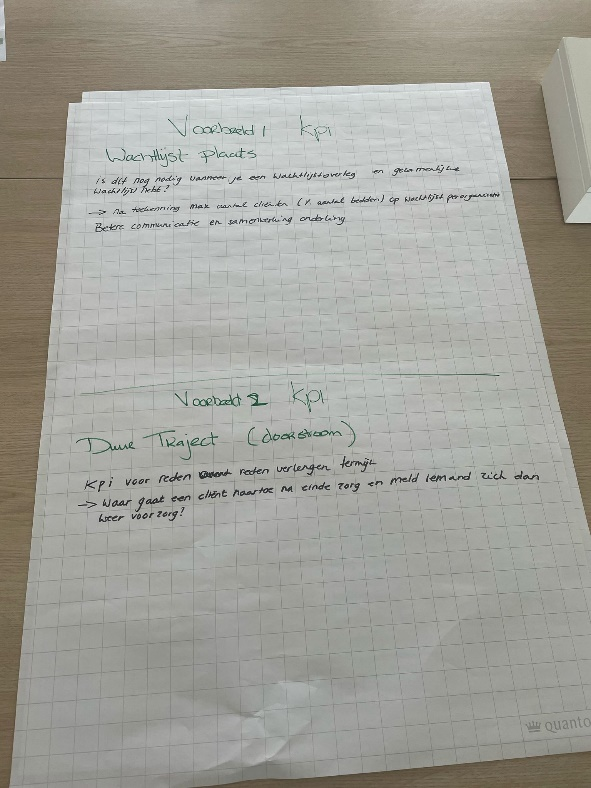 Voorbeeld 1 kpi
Wachtlijst plaats
Is dit nog nodig wanneer je een wachtlijstoverleg en gezamenlijke
wachtlijst hebt?
→ Na toekenning max aantal cliënten (% aantal bedden) op wachtlijst per organisatie
Betere communicatie en samenwerking onderling
Voorbeeld 2 kpi
Duur Traject (doorstroom)
Kpi voor reden reden verlengen termijn
→ Waar gaat een cliënt naartoe na einde zorg en meld iemand zich dan
weer voor zorg?
quanto